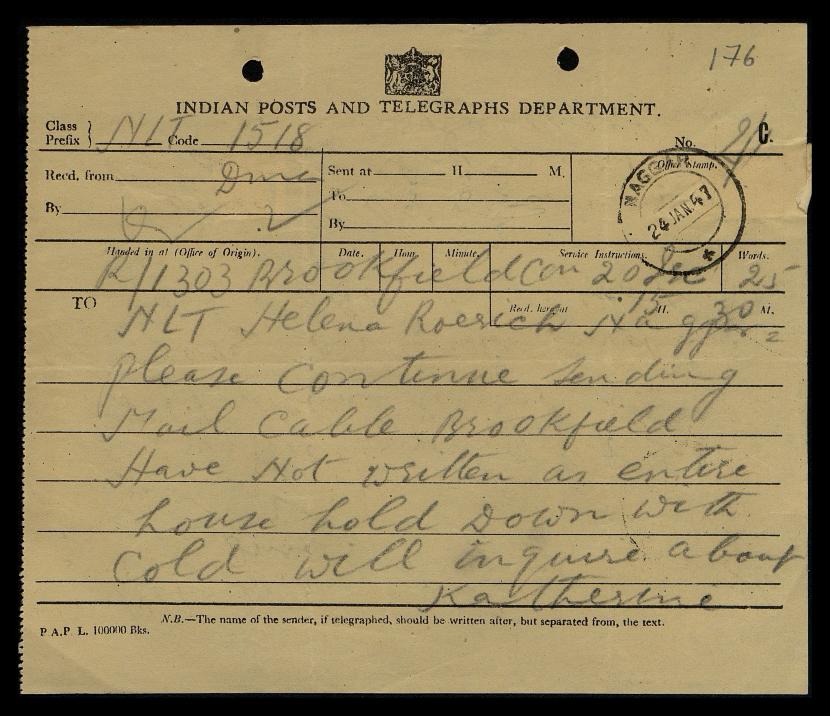 176
INDIAN POSTS AND TELEGRAPHS DEPARTMENT.
Class
Prefix } NLT Code 1518
No. C.
Recd. from Sent at H. M. Office Stamp.
To
By By
NAGGAR
24 JAN. 47
Handed in at (Office of Origin). Date. Hour. Minute. Service Instructions. Words.
R/1303 Brookfield Con 20 25
TO Recd. here at 15 H. 30 M.
NLT Helena Roerich Naggar =
Please continue sending
Mail Cable Brookfield
Have Not written as entire
house hold Down with
Cold will inquire about
Katherine
N.B.—The name of the sender, if telegraphed, should be written after, but separated from, the text.
P.A.P L. 100000 Bks.